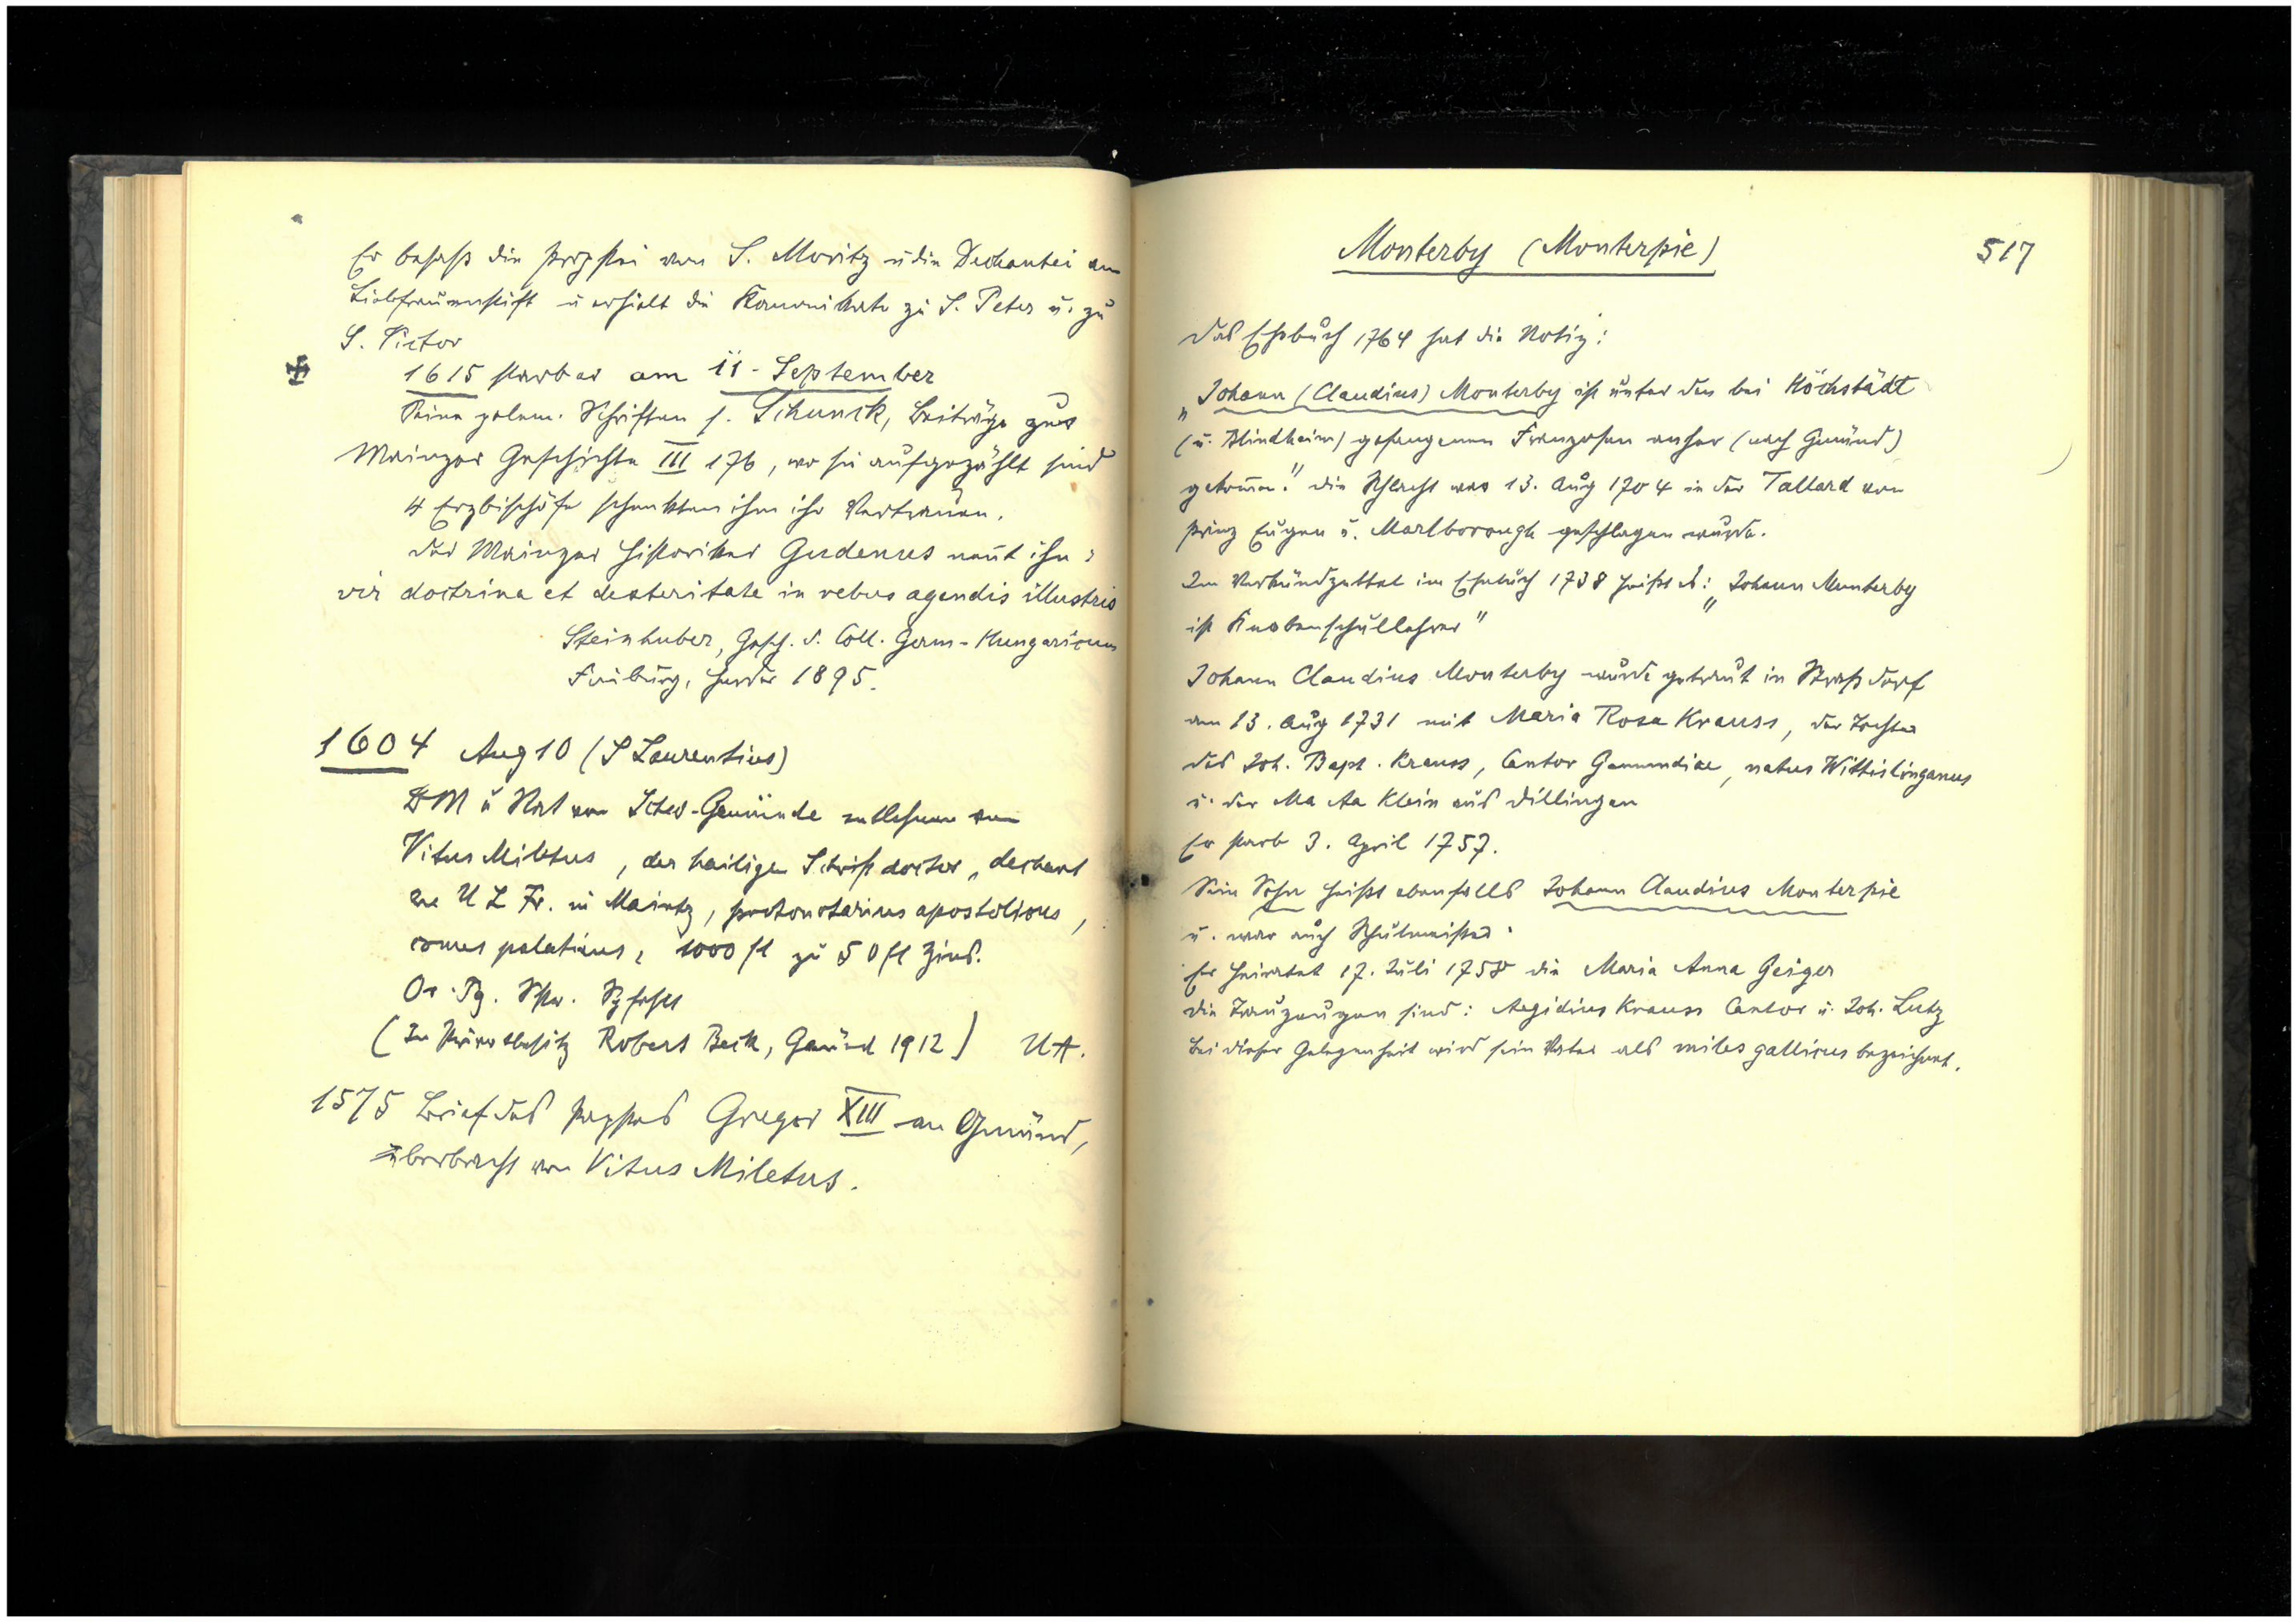 Er besaß die Propstei von S. Moritz u die Dechantei am
Liebfrauenstift u erhielt die Kanonikate zu S. Peter u. zu
S. Victor
1615 starb er am 11. September
Seine polem. Schriften s. Schunck, Beiträge zur
Mainzer Geschichte III 176, wo sie aufgezählt sind
4 Erzbischöfe schenkten ihm ihr Vertrauen.
Der Mainzer Historiker Gudenus nennt ihn:
vir doctrina et dexteritate in rebus agendis illustris
Steinhuber, Gesch. d. Coll. Germ-Hungaricum
Freiburg, Herder 1895.
1604 Aug 10 (S Laurentius)
BM u Rat von Schw-Gemünde entlehnen von
Vitus Miletus, der heiligen Schrift doctor, dechant
zu U L Fr. in Maintz, protonotarius apostolicus,
comes palatinus, 1000 fl zu 50 fl Zins.
Or. Pg.
(In Privatbesitz Robert Beck, Gmünd 1912) UA.
1575 Brief des Papstes Gregor XIII an Gmünd,
überbracht von Vitus Miletus.
Monterby (Monterpie) 517
Das Ehebuch 1764 hat die Notiz:
„Johann (Claudius) Monterby ist unter den bei Höchstädt
(u. Blindheim) gefangenen Franzosen anher (nach Gmünd)
gekom̄en." Die Schlacht war 13. Aug 1704 in der Tallard von
Prinz Eugen u. Marlborough geschlagen wurde.
Im Verkündzettel im Ehebuch 1738 heißt es: „Johann Monterby
ist Knabenschullehrer"
Johann Claudius Monterby wurde getraut in Straßdorf
am 13. Aug 1731 mit Maria Rosa Krauss, der Tochter
des Joh. Bapt. Krauss, Cantor Gamundiae, natus Wittislinganus
u. der Ma Aa Klein aus Dillingen
Er starb 3. April 1757.
Sein Sohn heißt ebenfalls Johann Claudius Monterpie
u. war auch Schulmeister.
Er heiratet 17. Juli 1758 die Maria Anna Geiger
Die Trauzeugen sind: Aegidius Krauss Cantor u. Joh. Lutz
Bei dieser Gelegenheit wird sein Vater als miles gallicus bezeichnet.